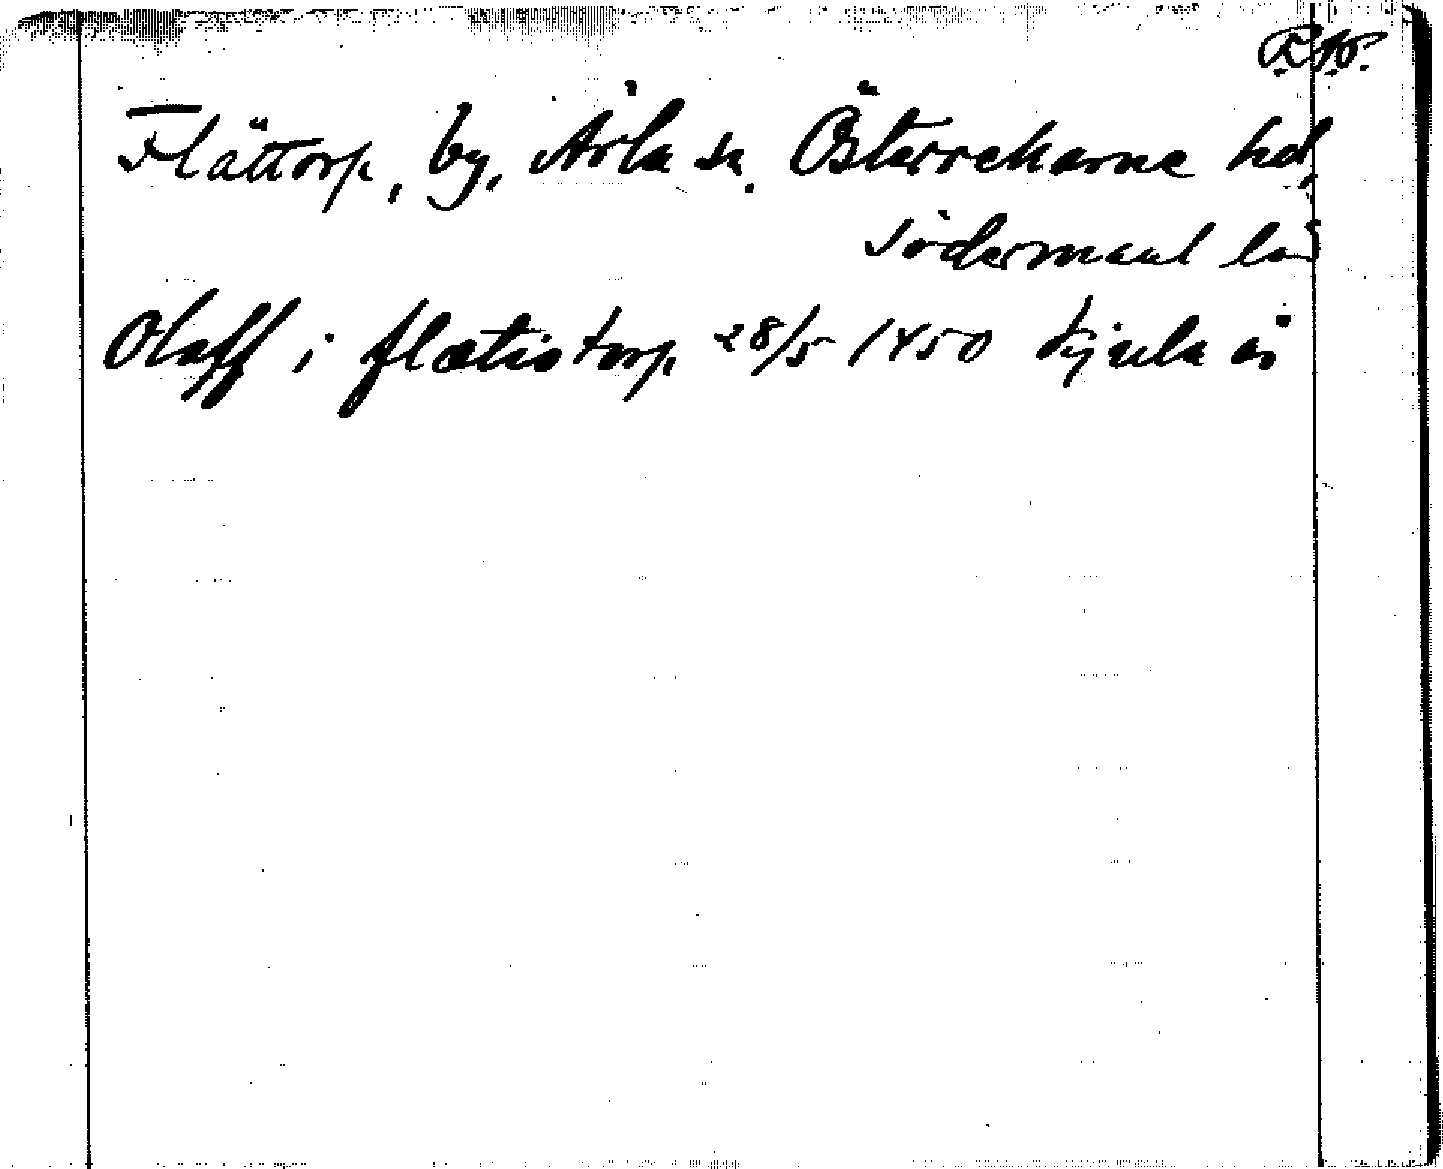 R.W.
Flättorp, by, Ärla sn. Österrekarne hd,
Södermanl län
Olaff i flætistorp 28/5 1450 Kjula ör